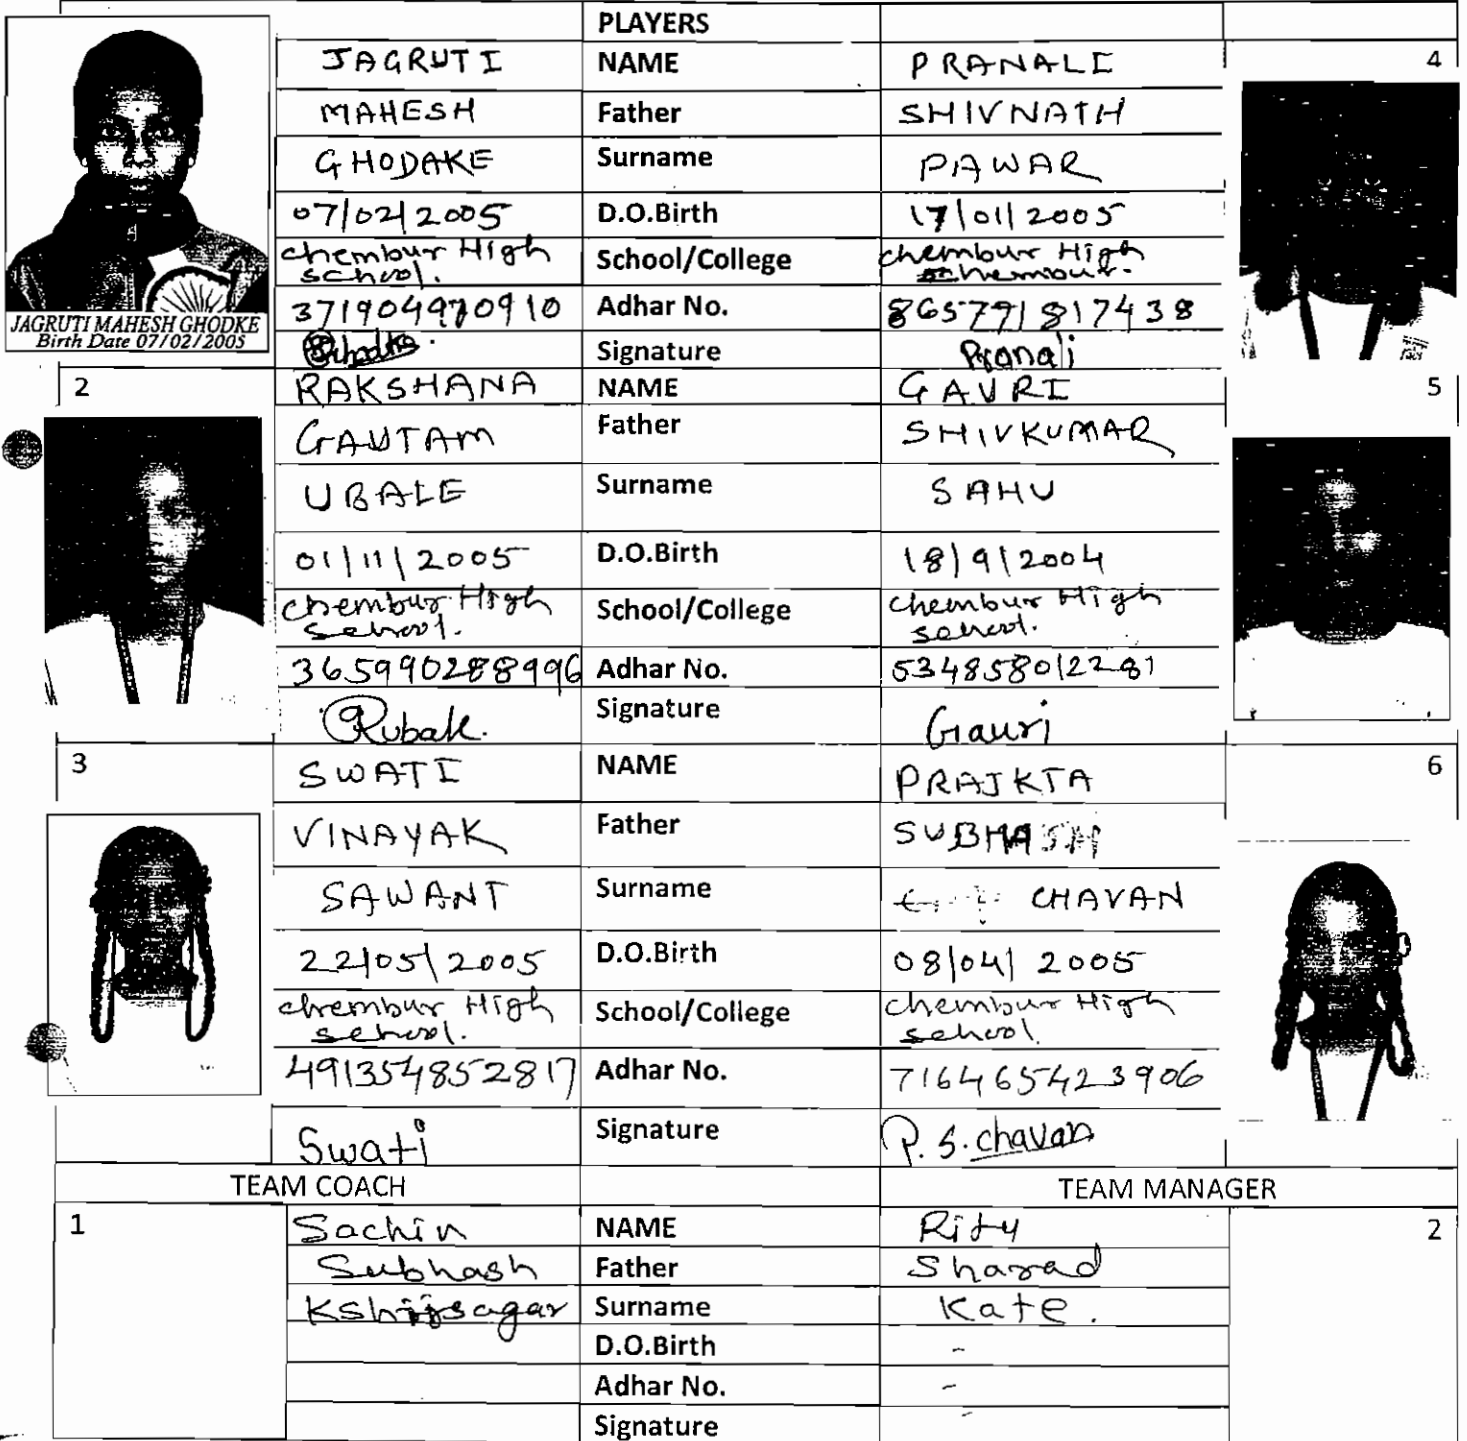 PLAYERS
JAGRUTI NAME PRANALI 4
MAHESH Father SHIVNATH
GHODAKE Surname PAWAR
07/02/2005 D.O.Birth 17/01/2005
chembur High school. School/College chembur High
371904970910 Adhar No. 865791817438
JAGRUTI MAHESH GHODKE
Birth Date 07/02/2005
Signature Pranali
2 RAKSHANA NAME GAVRI 5
GAUTAM Father SHIVKUMAR
UBALE Surname SAHU
01/11/2005 D.O.Birth 18/9/2004
chembur High school. School/College chembur High school.
365990288996 Adhar No. 534858012281
Signature Gauri
3 SWATI NAME PRAJKTA 6
VINAYAK Father SUBHASH
SAWANT Surname CHAVAN
22/05/2005 D.O.Birth 08/04/2005
chembur High school. School/College chembur High school.
491354852817 Adhar No. 716465423906
Swati Signature P. S. chavan
TEAM COACH TEAM MANAGER
1 Sachin NAME 2
Subhash Father Sharad
Kshirsagar Surname Kate.
D.O.Birth -
Adhar No. -
Signature -